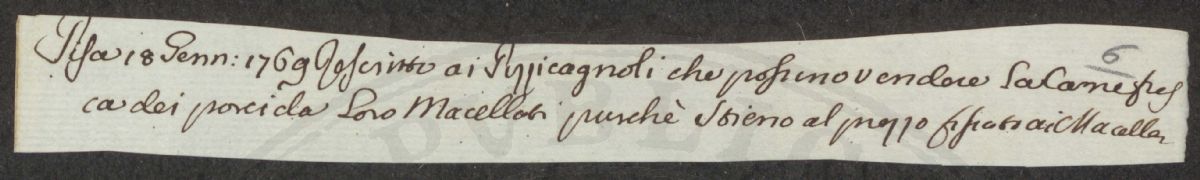 Pisa 18 Genn: 1769 Rescritto ai Pizzicagnoli che possino vendere la Carne fres
ca dei porci da Loro Macellati purchè Stieno al prezzo fissato ai Macellar
6